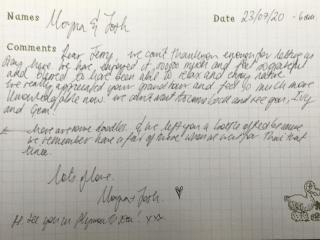 Names Morgna & Josh
Date 23/07/20 - 6am
Comments Dear Jerry, we can't thank you enough for letting us
stay here. We have enjoyed it soooo much and feel so grateful
and to have been able to relax and enjoy nature
we really appreciated your grand tour and feel so much more
knowledgeable now. we can't wait to come back and see you, Ivy
and Gem!
there are some doodles. & we left you a bottle of red because
we remember have a fair of these when we went for Thai that
time.
Lots of love,
Morgna + Josh.
See you in Plymouth xxx